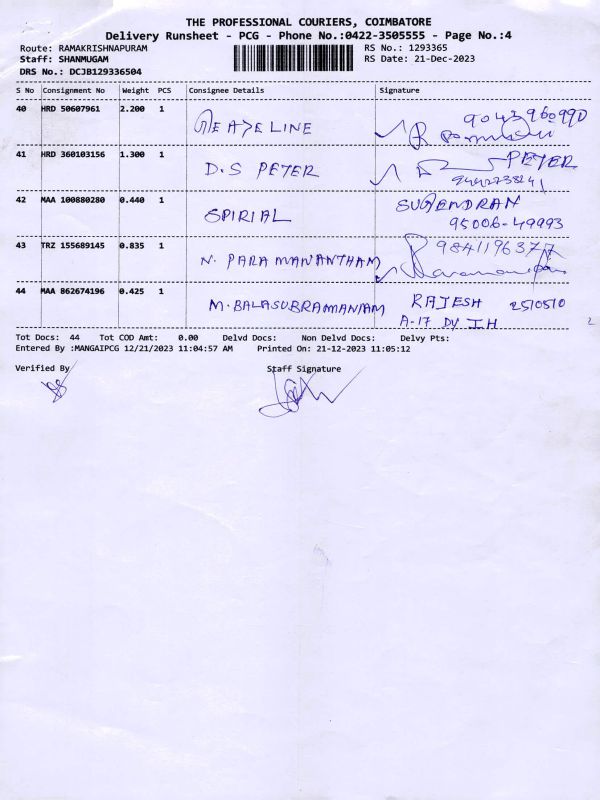 THE PROFESSIONAL COURIERS, COIMBATORE
Delivery Runsheet - PCG - Phone No.:0422-3505555 - Page No.:4
Route: RAMAKRISHNAPURAM RS No.: 1293365
Staff: SHANMUGAM RS Date: 21-Dec-2023
DRS No.: DCJB129336504
S No Consignment No Weight PCS Consignee Details Signature
40 HRD 50607961 2.200 1 LINE 9043960990
41 HRD 360103156 1.300 1 D.S PETER PETER
42 MAA 100880280 0.440 1 SPIRIAL SUGENDRAN
95006-49993
43 TRZ 155689145 0.835 1 N. PARAMANANTHAM 9841196377
44 MAA 862674196 0.425 1 M.BALASUBRAMANIAM RAJESH 2510510
A-17
Tot Docs: 44 Tot COD Amt: 0.00 Delvd Docs: Non Delvd Docs: Delvy Pts:
Entered By :MANGAIPCG 12/21/2023 11:04:57 AM Printed On: 21-12-2023 11:05:12
Verified By Staff Signature